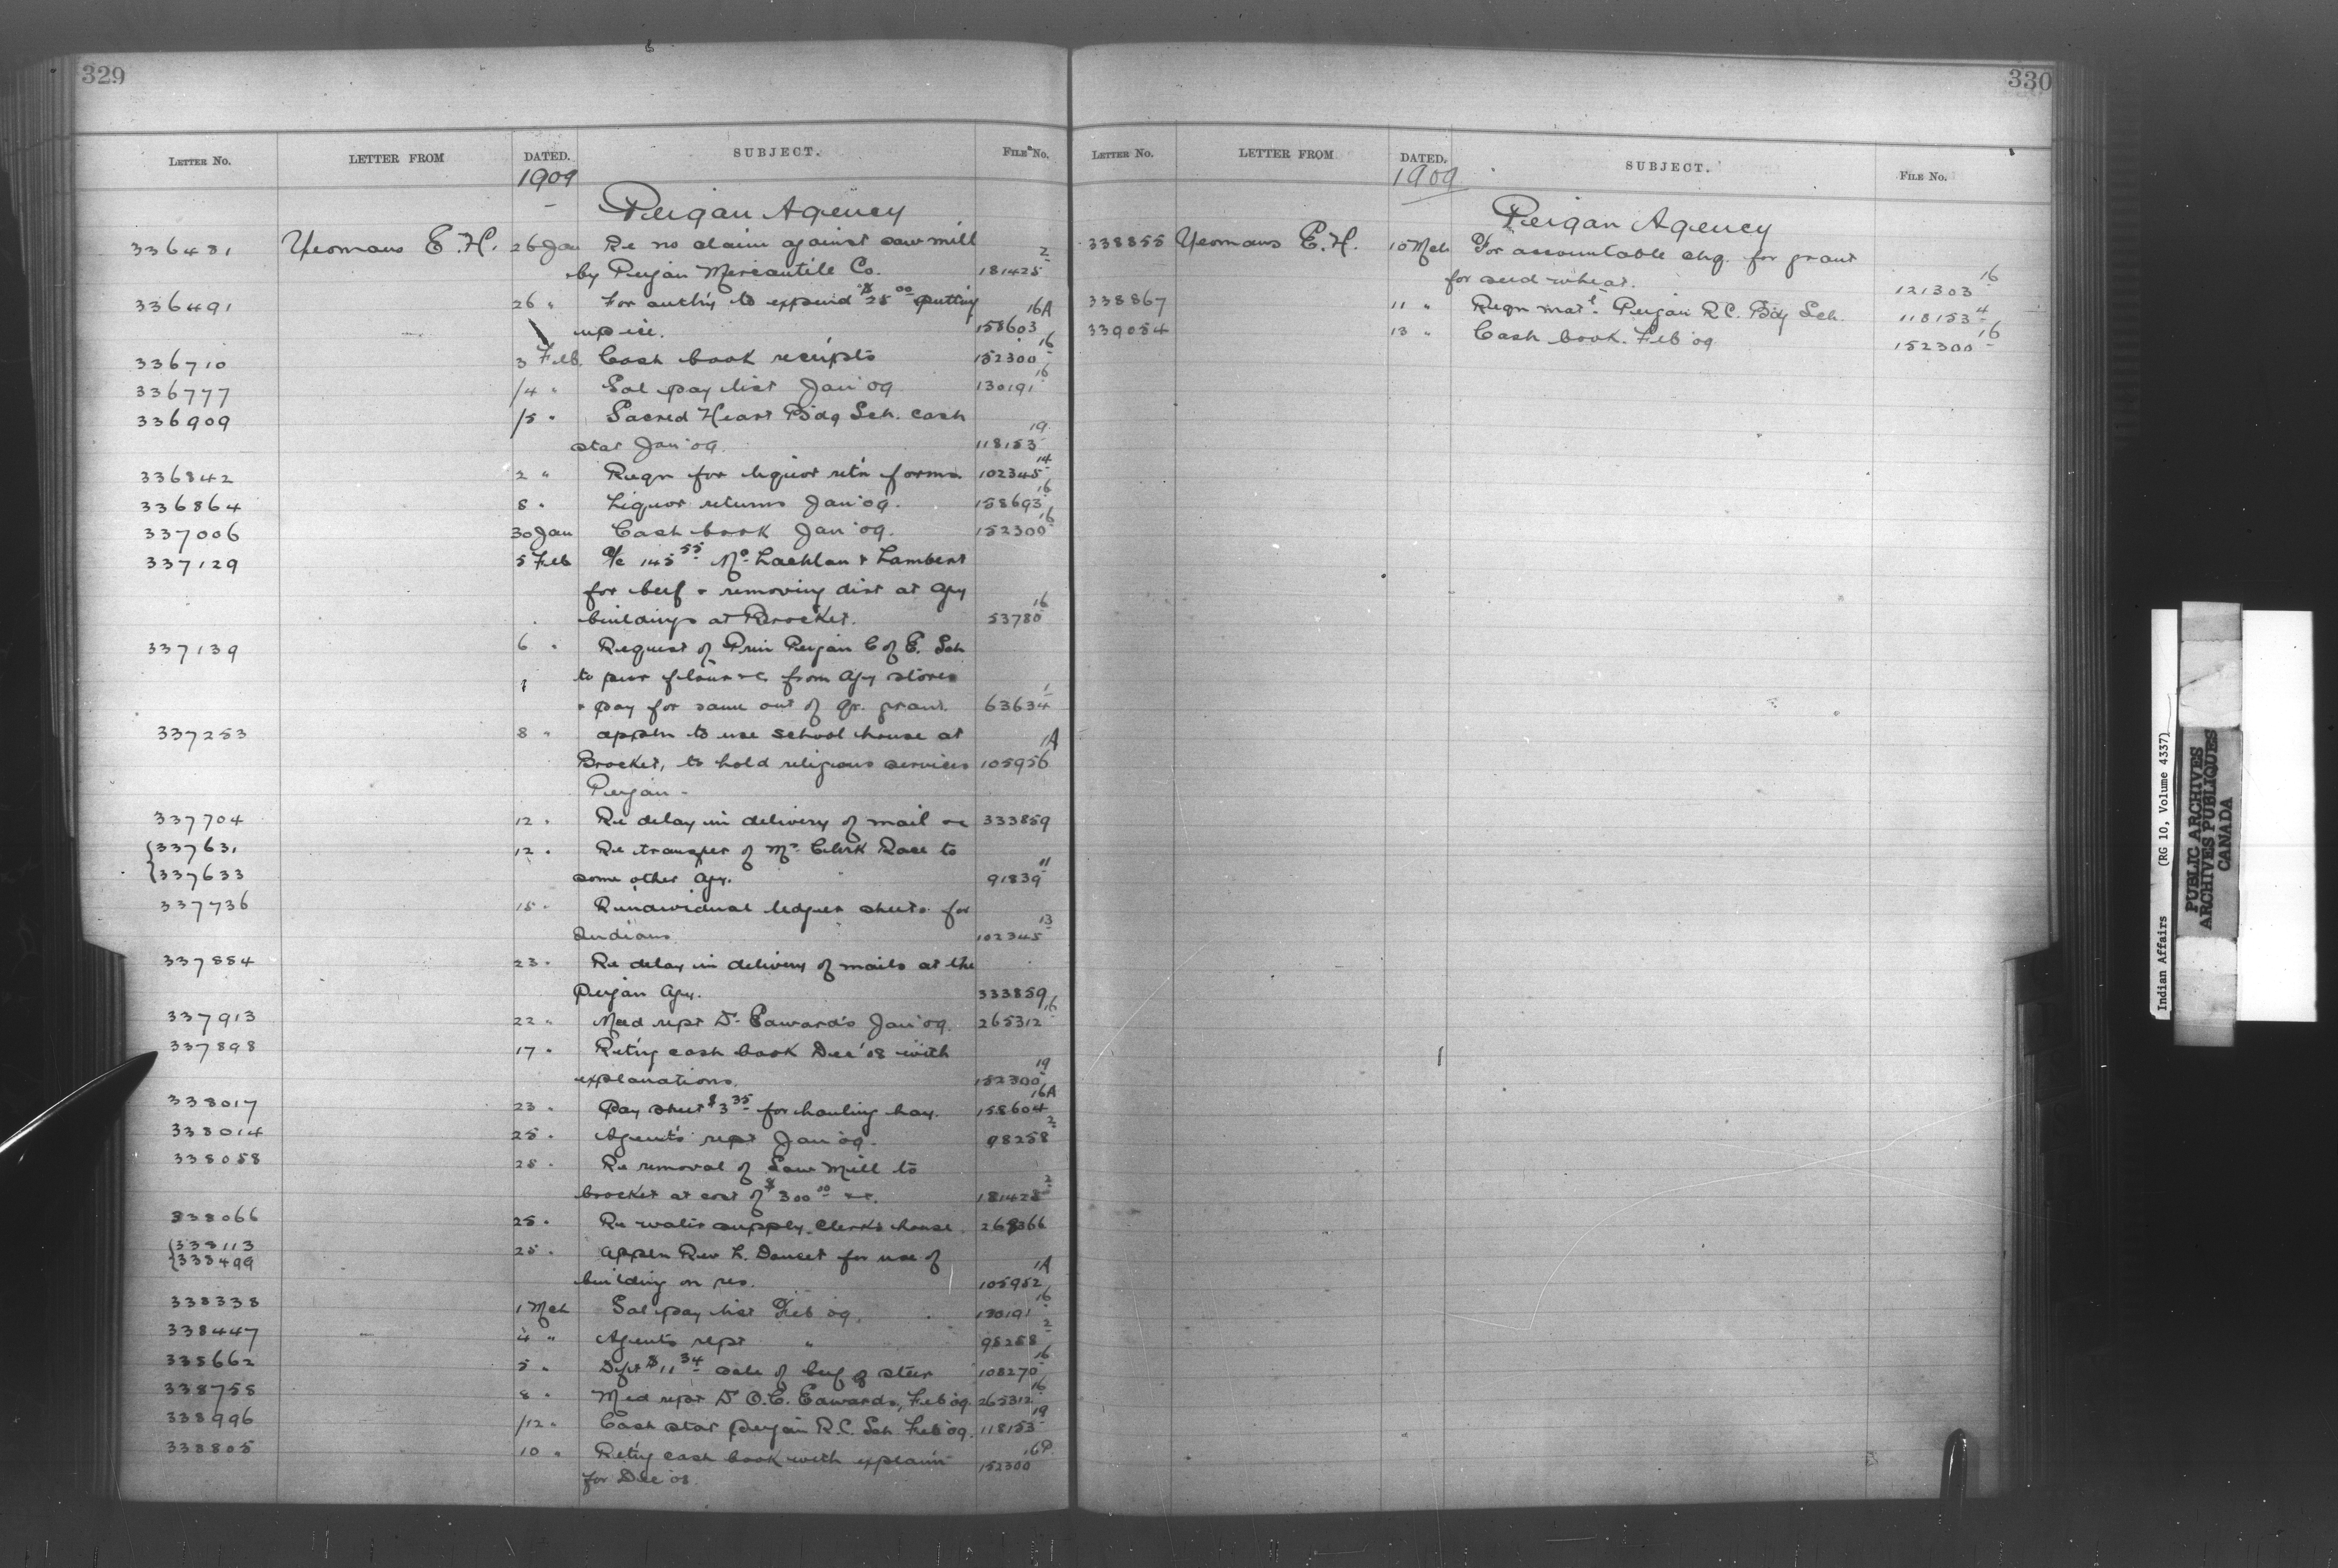 329
LETTER No. LETTER FROM DATED. SUBJECT. FILE No.
1909
Peigan Agency
336481 Yeomans E. H. 26 Jan Re no claim against saw mill
by Peigan Mercantile Co. 181425 2
336491 26 " For auth'y to expend $25 00 putting
up ice. 158603 16A
336710 3 Feb. Cash book receipts 152300 16
336777 /4 " Sal pay list Jan '09 130191 16
336909 /5 " Sacred Heart Bdg Sch. cash
stat Jan '09. 118153 19
336842 2 " Reqn for liquor ret'n forms 102345 14
336864 8 " Liquor returns Jan '09. 158693 16
337006 30 Jan Cash book Jan '09. 152300 16
337129 5 Feb a/c 145 55 Mc Lachlan & Lambert
for beef & removing dirt at Agy
buildings at Brocket. 53780 16
337139 6 " Request of Prin Peigan C of E. Sch
to pur flour &c from Agy stores
& pay for same out of qr. grant. 63634 1
337253 8 " appln to use school house at
Brocket, to hold religious services 105956 1A
Peigan -
337704 12 " Re delay in delivery of mail &c 333859
337631 12 " Re transfer of Mr Clerk Race to
337633 some other Agy. 91839 11
337736 15 " Re individual ledger sheets for
Indians 102345 13
337884 23 " Re delay in delivery of mails at the
Peigan Agy. 333859
337913 22 " Med rept Dr Edwards Jan '09. 265312 16
337898 17 " Ret'ng cash book Dec '08 with
explanations. 152300 19
338017 23 " Pay sheet $3 35 for hauling hay. 158604 16A
338014 25 " Agent's rept Jan '09. 98258 2
338058 25 " Re removal of Saw Mill to
brocket at cost of $300 00 &c. 181425 2
338066 25 " Re water supply, Clerk's house. 268366
338113 25 " appln Rev L. Doucet for use of
338499 building on res. 105952 1A
338338 1 Mch Sal pay list Feb '09. 130191 16
338447 4 " Agents rept " 98258 2
338662 5 " Dft $11 34 sale of beef of steer 108270 16
338758 8 " Med rept Dr O.C. Edwards, Feb '09. 265312 16
338996 /12 " Cash stat Peigan R.C. Sch Feb '09. 118153 19
338805 10 " Ret'ng cash book with explain 152300 16P
for Dec '08.
330
LETTER No. LETTER FROM DATED. SUBJECT. FILE No.
1909
Peigan Agency
338855 Yeomans E. H. 10 Mch For accountable chq. for grant
for seed wheat. 121303 16
338867 11 " Reqn mat'l. Peigan R C. Bdg Sch. 118153 4
339054 13 " Cash book. Feb '09 152300 16
Indian Affairs (RG 10, Volume 4337)
PUBLIC ARCHIVES
ARCHIVES PUBLIQUES
CANADA